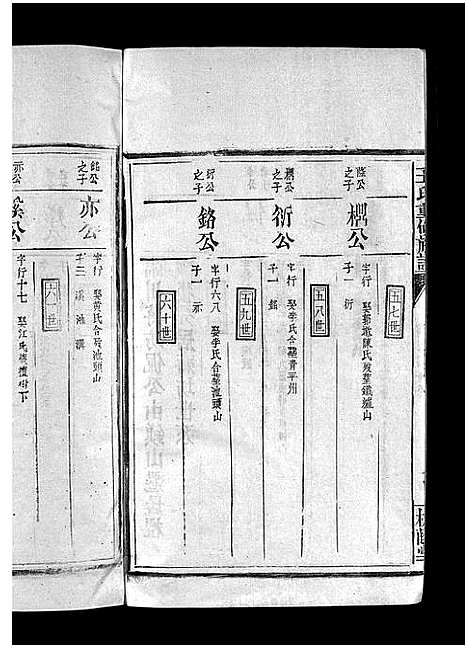 五七世
陰公之子
楒公
字行 娶 陳氏 葬鐵爐山
子一 衍
五八世
楒公之子
衍公
字行 娶李氏合葬青平州
子一 銘
五九世
衍公之子
銘公
字行六八 娶李氏合葬池頭山
子一 亦
六十世
銘公之子
亦公
字行 娶黃氏合葬池頭山
子三 溪 池
六一世
亦公之子
溪公
字行十七 娶江氏 樹下
王氏重修族譜